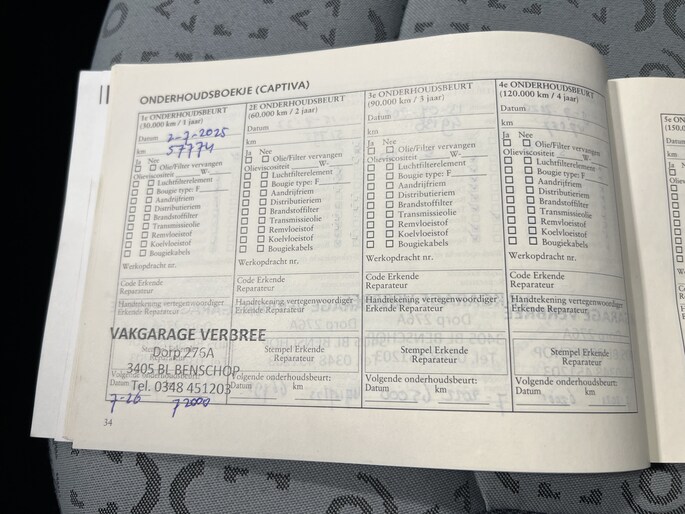 ONDERHOUDSBOEKJE (CAPTIVA)
1e ONDERHOUDSBEURT
(30.000 km / 1 jaar)
Datum 2-7-2025
km 57774
Ja Nee
Olie/Filter vervangen
Olieviscositeit ______W-____
Luchtfilterelement
Bougie type: F______
Aandrijfriem
Distributieriem
Brandstoffilter
Transmissieolie
Remvloeistof
Koelvloeistof
Bougiekabels
Werkopdracht nr.
Code Erkende
Reparateur
Handtekening vertegenwoordiger
Erkende Reparateur
VAKGARAGE VERBREE
Stempel Erkende
Dorp 276A
Reparateur
3405 BL BENSCHOP
Volgende onderhoudsbeurt:
Tel. 0348 451203
Datum
7-26 72000
2E ONDERHOUDSBEURT
(60.000 km / 2 jaar)
Datum
km
Ja Nee
Olie/Filter vervangen
Olieviscositeit ______W-____
Luchtfilterelement
Bougie type: F______
Aandrijfriem
Distributieriem
Brandstoffilter
Transmissieolie
Remvloeistof
Koelvloeistof
Bougiekabels
Werkopdracht nr.
Code Erkende
Reparateur
Handtekening vertegenwoordiger
Erkende Reparateur
Stempel Erkende
Reparateur
Volgende onderhoudsbeurt:
Datum km
3e ONDERHOUDSBEURT
(90.000 km / 3 jaar)
Datum
km
Ja Nee
Olie/Filter vervangen
Olieviscositeit ______W-____
Luchtfilterelement
Bougie type: F______
Aandrijfriem
Distributieriem
Brandstoffilter
Transmissieolie
Remvloeistof
Koelvloeistof
Bougiekabels
Werkopdracht nr.
Code Erkende
Reparateur
Handtekening vertegenwoordiger
Erkende Reparateur
Stempel Erkende
Reparateur
Volgende onderhoudsbeurt:
Datum km
4e ONDERHOUDSBEURT
(120.000 km / 4 jaar)
Datum
km
Ja Nee
Olie/Filter vervangen
Olieviscositeit ______W-____
Luchtfilterelement
Bougie type: F______
Aandrijfriem
Distributieriem
Brandstoffilter
Transmissieolie
Remvloeistof
Koelvloeistof
Bougiekabels
Werkopdracht nr.
Code Erkende
Reparateur
Handtekening vertegenwoordiger
Erkende Reparateur
Stempel Erkende
Reparateur
Volgende onderhoudsbeurt:
Datum km
34
5e
(150.0
Datum
km
Ja